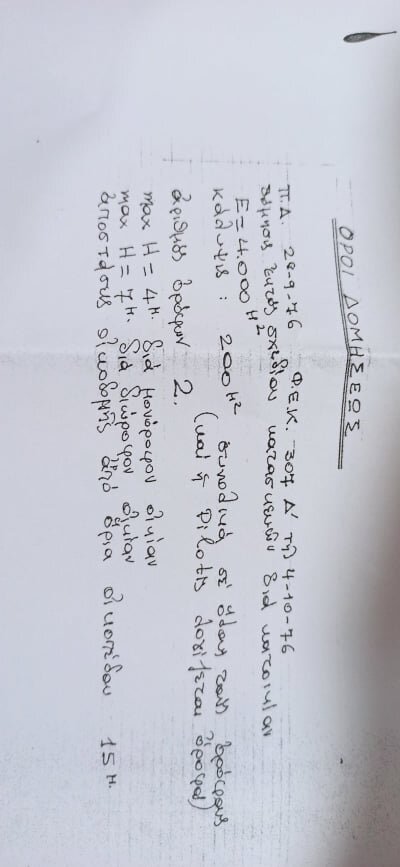 ΟΡΟΙ ΔΟΜΗΣΕΩΣ
Π.Δ. 28-9-76 Φ.Ε.Κ. 307 Δ' τῆς 4-10-76
ἐκτὸς σχεδίου κατασκευῶν διὰ κατοικίαν
E = 4.000 Μ²
κάλυψις : 200 Μ² συνολικά σέ ὅλους τούς ὀρόφους
(καί ἡ Pilotis λογίζεται ὄροφος)
ἀριθμός ὀρόφων 2.
max H = 4 Μ. διά μονόροφον οἰκίαν
max H = 7 Μ. διά διώροφον οἰκίαν
ἀποστάσεις οἰκοδομῆς ἀπό ὅρια οἰκοπέδου 15 Μ.